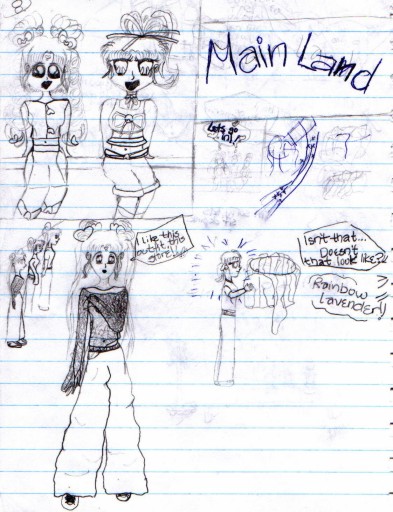 Main Land
Lets go
in!!
I like this
outfit, this
store!!
Isn't that...
Doesn't
that look like?!!
Rainbow
lavender!!